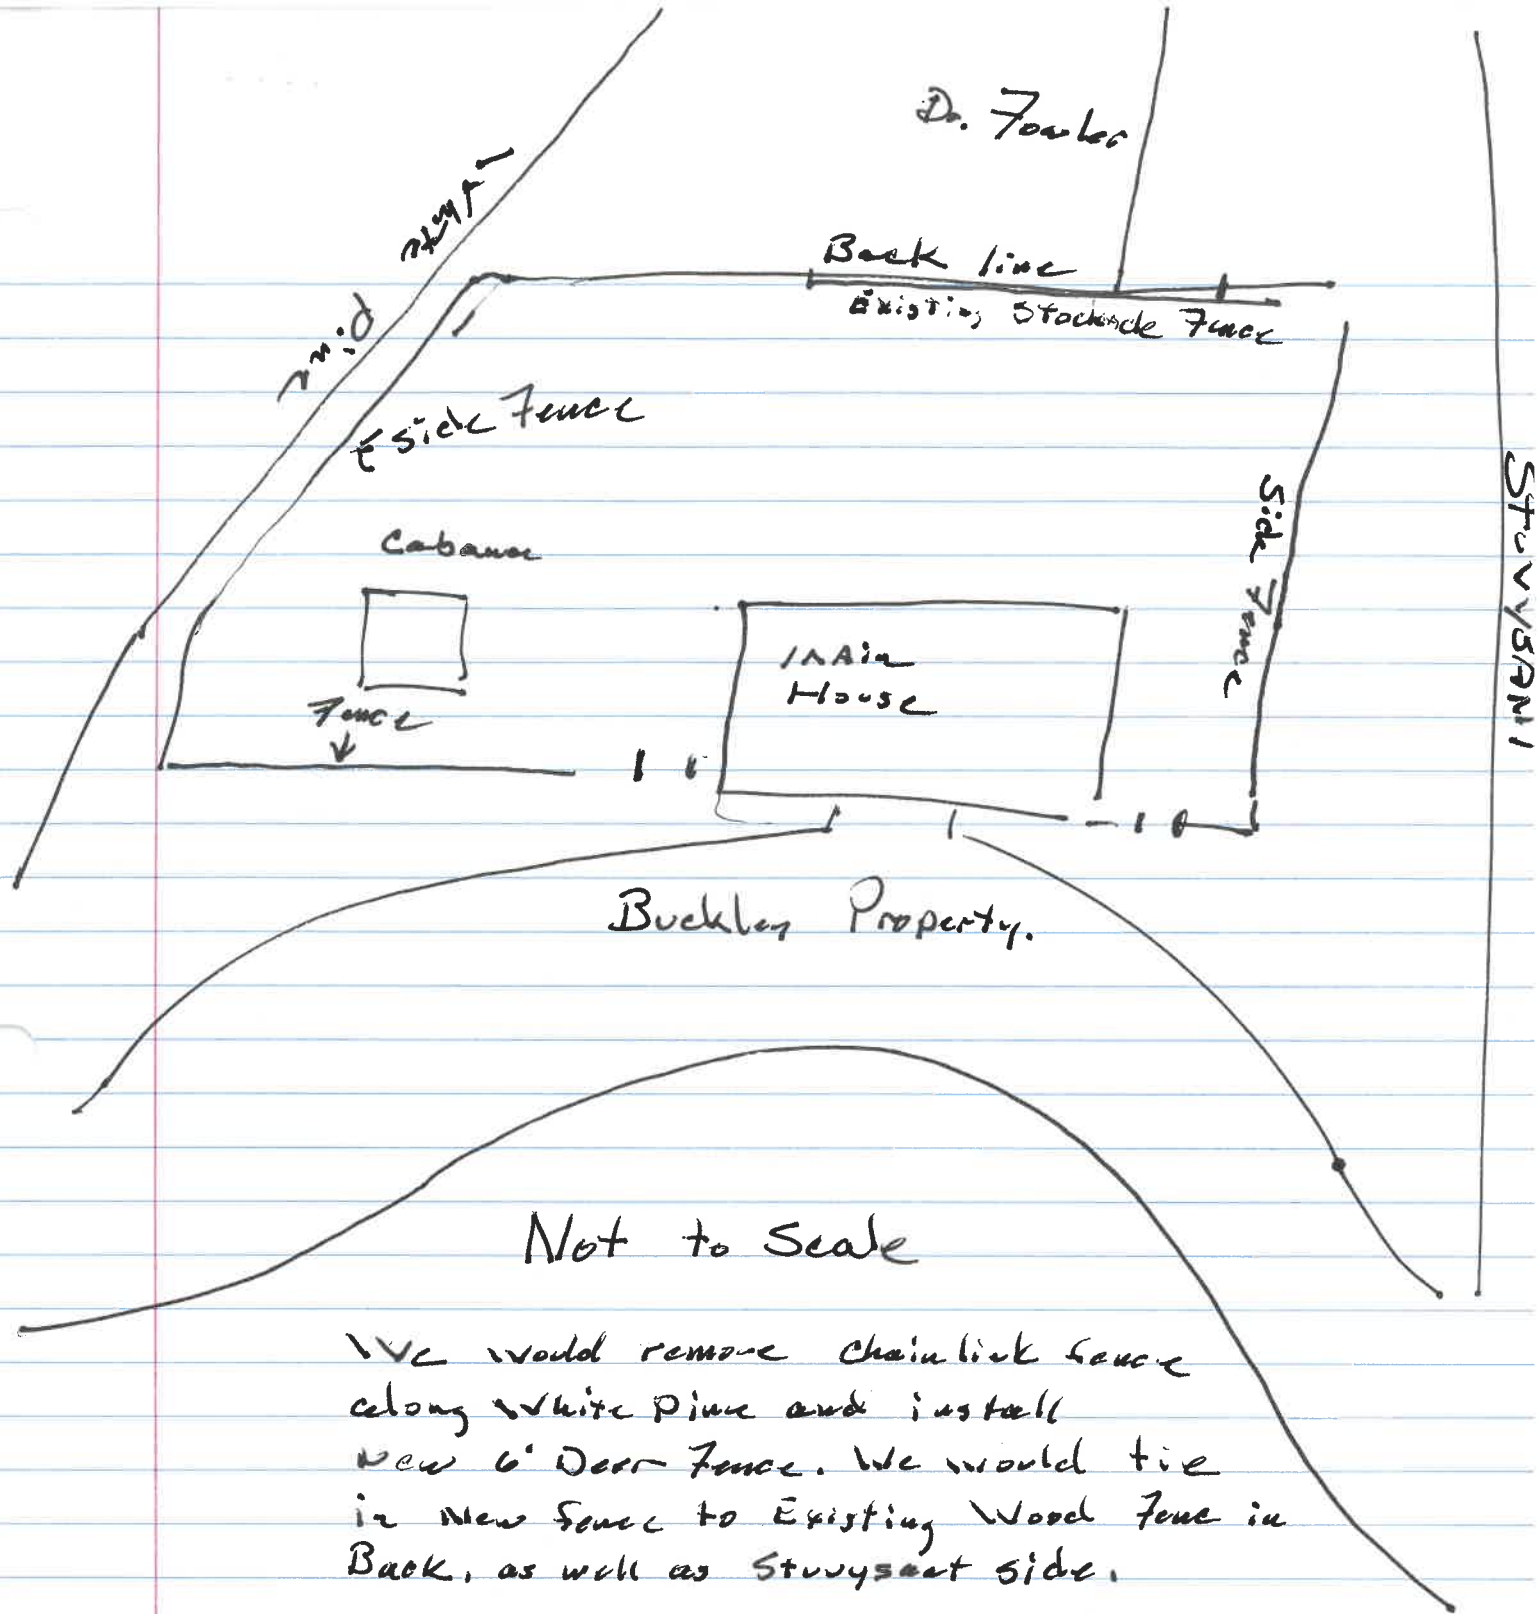 Dr. Fowler
White
Pine
Back line
Existing Stockade Fence
Side Fence
Side Fence
STUVYSANT
Cabana
Fence
Main
House
Buckley Property.
Not to Scale
We would remove chain link fence
along White Pine and install
New 6' Deer Fence. We would tie
in New fence to Existing Wood Fence in
Back, as well as Stuvysant side.